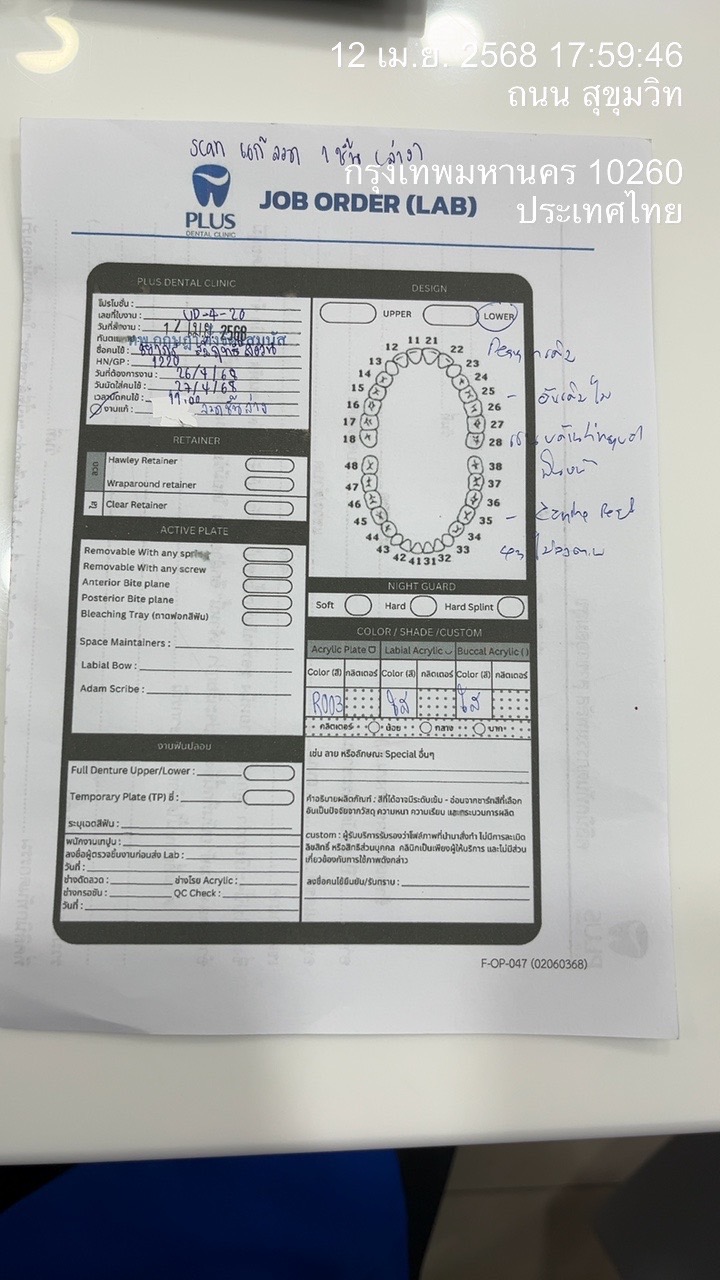 12 เม.ย. 2568 17:59:46
ถนน สุขุมวิท
กรุงเทพมหานคร 10260
ประเทศไทย
scan แก้ ลวด 1 ชิ้น (ล่าง)
PLUS
DENTAL CLINIC
JOB ORDER (LAB)
PLUS DENTAL CLINIC
โปรโมชั่น :
เลขที่ใบงาน : UD-4-20
วันที่ส่งงาน : 12 เม.ย. 2568
ชื่อคนไข้ :
HN/GP : 1220
วันที่ต้องการงาน : 26/4/68
วันนัดใส่คนไข้ : 27/4/68
เวลานัดคนไข้ : 11.00
งานแก้ : ลวดชิ้นล่าง
RETAINER
Hawley Retainer
Wraparound retainer
Clear Retainer
ACTIVE PLATE
Removable With any spring
Removable With any screw
Anterior Bite plane
Posterior Bite plane
Bleaching Tray (ถาดฟอกสีฟัน)
Space Maintainers :
Labial Bow :
Adam Scribe :
งานฟันปลอม
Full Denture Upper/Lower :
Temporary Plate (TP) ซี่ :
ระบุเฉดสีฟัน :
พนักงานเทปูน :
ลงชื่อผู้ตรวจชิ้นงานก่อนส่ง Lab :
วันที่ :
ช่างดัดลวด : ช่างโรย Acrylic :
ช่างกรอขัด : QC Check :
วันที่ :
DESIGN
UPPER LOWER
11 21
12 22
13 23
14 24
15 25
16 26
17 27
18 28
48 38
47 37
46 36
45 35
44 34
43 33
42 41 31 32
NIGHT GUARD
Soft Hard Hard Splint
COLOR / SHADE /CUSTOM
Acrylic Plate Labial Acrylic Buccal Acrylic ()
Color (สี) กลิตเตอร์ Color (สี) กลิตเตอร์ Color (สี) กลิตเตอร์
R003 ใส ใส
กลิตเตอร์ น้อย กลาง มาก
เช่น ลาย หรือลักษณะ Special อื่นๆ
คำอธิบายผลิตภัณฑ์ : สีที่ได้อาจมีระดับเข้ม - อ่อนจากชาร์ทสีที่เลือก
อันเป็นปัจจัยจากวัสดุ ความหนา ความเรียบ และกระบวนการผลิต
custom : ผู้รับบริการรับรองว่าไฟล์ภาพที่นำมาสั่งทำ ไม่มีการละเมิด
ลิขสิทธิ์ หรือสิทธิส่วนบุคคล คลินิกเป็นเพียงผู้ให้บริการ และไม่มีส่วน
เกี่ยวข้องกับการใช้ภาพดังกล่าว
ลงชื่อคนไข้ยืนยัน/รับทราบ :
F-OP-047 (02060368)